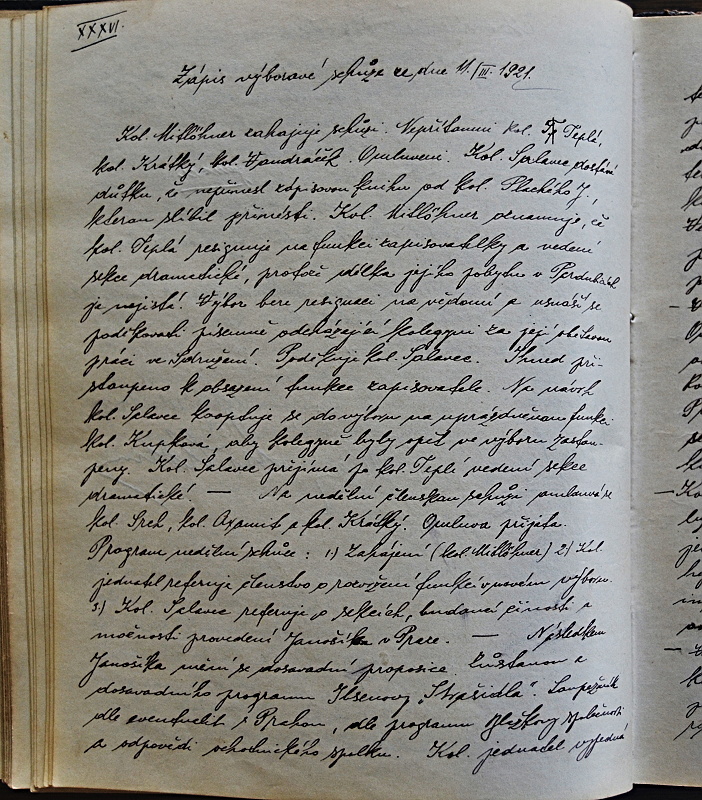 XXXVI.
Zápis výborové schůze ze dne 11./III. 1921.
Kol. Mitlöhner zahajuje schůzi. Nepřítomni kol. Teplá,
kol. Krátký, kol. Vondráček. Omluveni. Kol. Salavec dostává
důtku, že nepřinesl zápisovou knihu od kol. Plachého J.,
kterou slíbil přinésti. Kol. Mitlöhner oznamuje, že
kol. Teplá resignuje na funkci zapisovatelky a vedení
sekce dramatické, protože délka jejího pobytu v Pardubicích
je nejistá. Výbor bere resignaci na vědomí a usnáší se
poděkovati písemně odcházející kolegyni za její obětavou
práci ve Sdružení. Poděkuje kol. Salavec. Ihned při-
stoupeno k obsazení funkce zapisovatele. Na návrh
kol. Salavce kooptuje se do výboru na uprázdněnou funkci
kol. Kupková, aby kolegyně byly opět ve výboru zastou-
peny. Kol. Salavec přijímá po kol. Teplé vedení sekce
dramatické. — Na nedělní členskou schůzi omlouvá se
kol. Srch, kol. Axamit a kol. Krátký. Omluva přijata.
Program nedělní schůze: 1.) Zahájení (kol. Mitlöhner) 2.) Kol.
jednatel referuje členstvu o rozvržení funkcí v novém výboru.
3.) Kol. Salavec referuje o sekcích, budoucí činnosti a
možnosti provedení Janošíka v Praze. — Následkem
Janošíka mění se dosavadní proposice a
dosavadního programu Ilsenovy „Strašidla".
dle eventuelit s Prahou, dle programu společnosti
a odpovědi ochotnického spolku. Kol. jednatel vyjedná